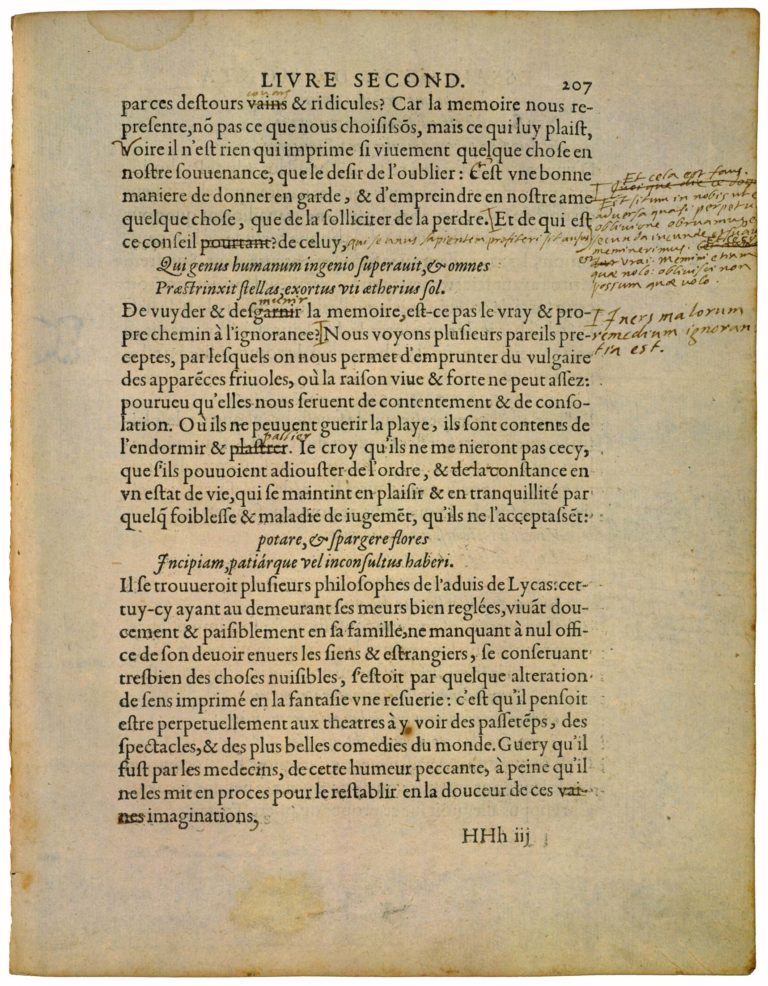 LIVRE SECOND. 207
couars
par ces destours vains & ridicules? Car la memoire nous re-
presente, nõ pas ce que nous choisissõs, mais ce qui luy plaist,
Voire il n'est rien qui imprime si viuement quelque chose en
nostre souuenance, que le desir de l'oublier: C'est vne bonne
maniere de donner en garde, & d'empreindre en nostre ame
quelque chose, que de la solliciter de la perdre. Et de qui est
ce conseil pourtant? de celuy, qui se unus sapientem profiteri sit ausus
Qui genus humanum ingenio superauit, & omnes
Præstrinxit stellas, exortus vti ætherius sol.
De vuyder & desgarnir la memoire, est-ce pas le vray & pro-
pre chemin à l'ignorance? Nous voyons plusieurs pareils pre-
ceptes, par lesquels on nous permet d'emprunter du vulgaire
des apparẽces friuoles, où la raison viue & forte ne peut assez:
pourueu qu'elles nous seruent de contentement & de conso-
lation. Où ils ne peuuent guerir la playe, ils sont contents de
pallier
l'endormir & plastrer. Ie croy qu'ils ne me nieront pas cecy,
que s'ils pouuoient adiouster de l'ordre, & de la constance en
vn estat de vie, qui se maintint en plaisir & en tranquillité par
quelq̃ foiblesse & maladie de iugemẽt, qu'ils ne l'acceptassẽt:
potare, & spargere flores
Incipiam, patiárque vel inconsultus haberi.
Il se trouueroit plusieurs philosophes de l'aduis de Lycas: cet-
tuy-cy ayant au demeurant ses meurs bien reglées, viuãt dou-
cement & paisiblement en sa famille, ne manquant à nul offi-
ce de son deuoir enuers les siens & estrangiers, se conseruant
tresbien des choses nuisibles, s'estoit par quelque alteration
de sens imprimé en la fantasie vne resuerie: c'est qu'il pensoit
estre perpetuellement aux theatres à y voir des passetẽps, des
spectacles, & des plus belles comedies du monde. Guery qu'il
fust par les medecins, de cette humeur peccante, à peine qu'il
ne les mit en proces pour le restablir en la douceur de ces vai-
nes imaginations,
HHh iij
Et cela est faus.
Est situm in nobis ut et
aduersa quasi perpetua
obliuione obruamus et
secunda iucunde et suau
meminerimus.
vrai. memini etiam
quæ nolo: obliuisci non
possum quæ volo.
Iners malorum
remedium ignoran
tia est.